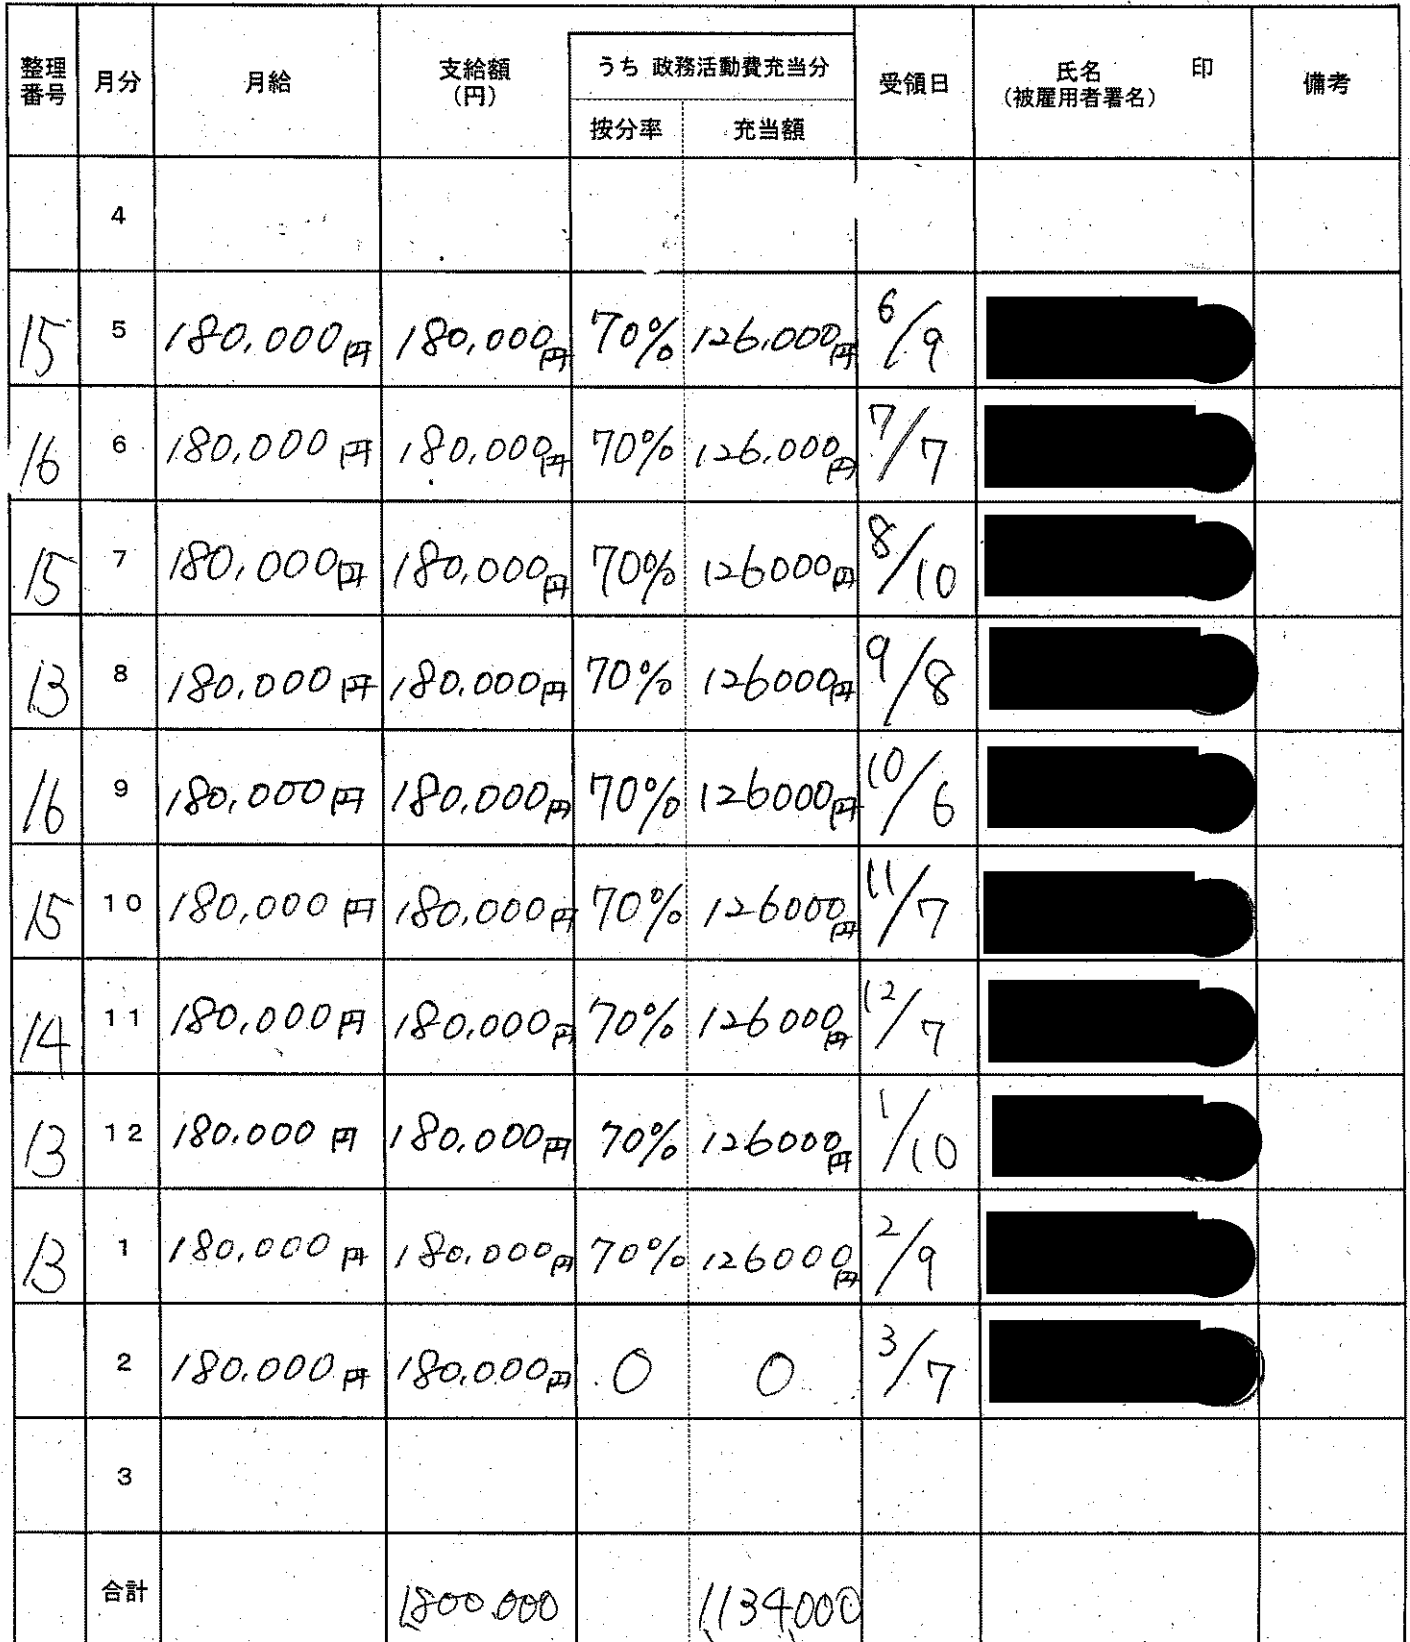 整理番号 月分 月給 支給額（円） うち 政務活動費充当分 受領日 氏名（被雇用者署名） 印 備考
按分率 充当額
4
15 5 180,000円 180,000円 70% 126,000円 6/9
16 6 180,000円 180,000円 70% 126,000円 7/7
15 7 180,000円 180,000円 70% 126000円 8/10
13 8 180,000円 180,000円 70% 126000円 9/8
16 9 180,000円 180,000円 70% 126000円 10/6
15 10 180,000円 180,000円 70% 126000円 11/7
14 11 180,000円 180,000円 70% 126000円 12/7
13 12 180,000円 180,000円 70% 126000円 1/10
13 1 180,000円 180,000円 70% 126000円 2/9
2 180,000円 180,000円 0 0 3/7
3
合計 1800,000 1134,000